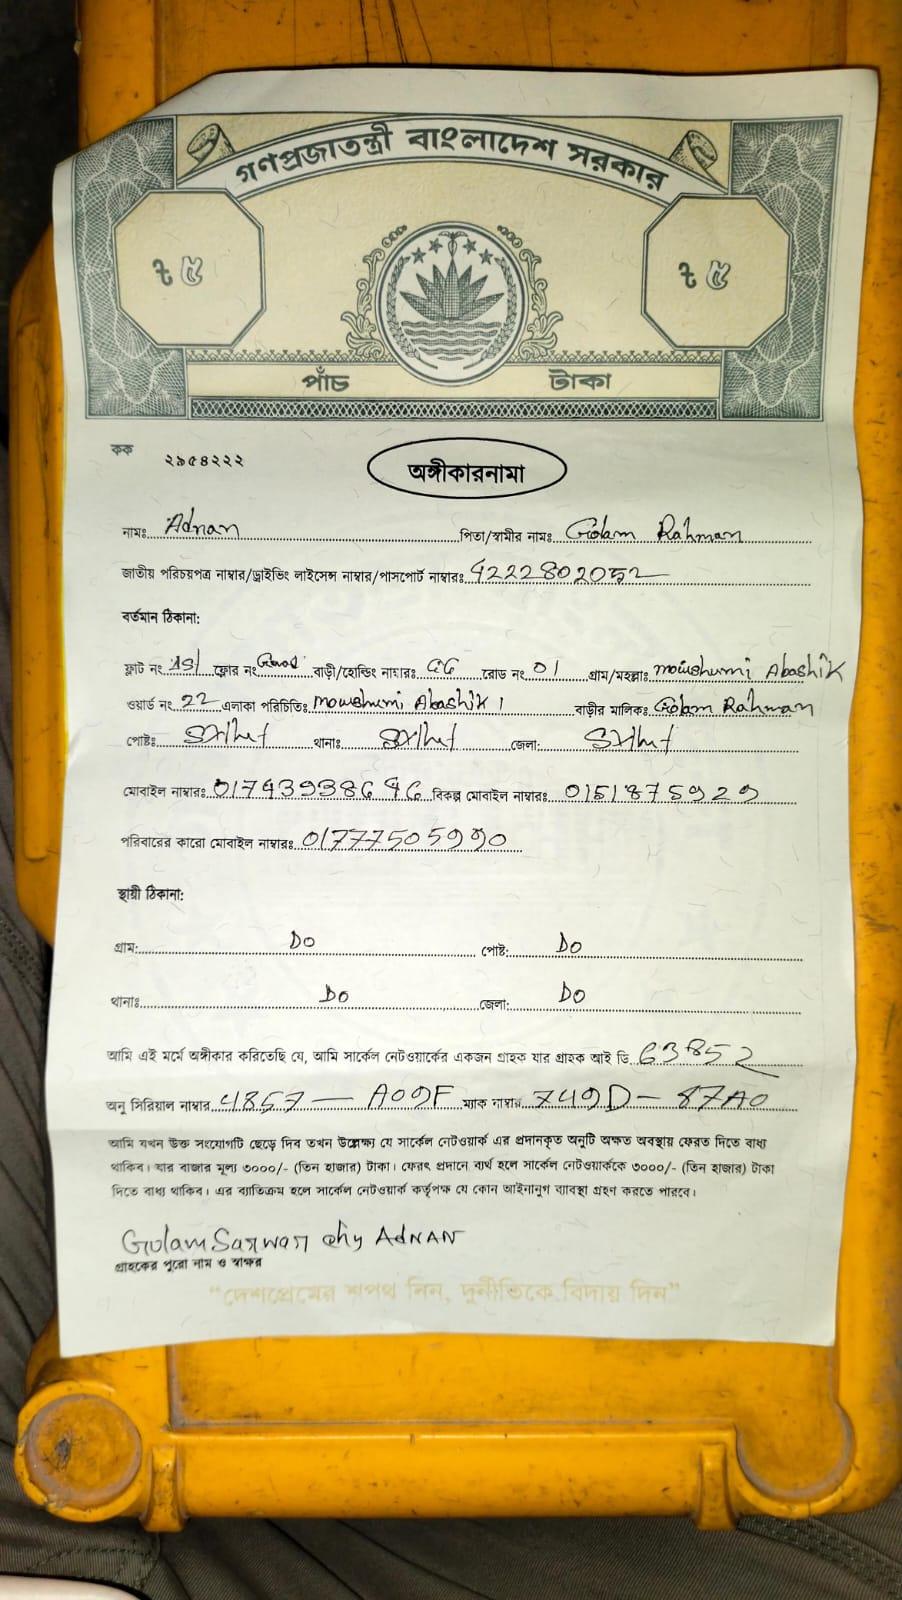 গণপ্রজাতন্ত্রী বাংলাদেশ সরকার
৳ ৫ ৳ ৫
পাঁচ টাকা
কক ২৯৫৪২২২
অঙ্গীকারনামা
নামঃ Adnan পিতা/স্বামীর নামঃ Golam Rahman
জাতীয় পরিচয়পত্র নাম্বার/ড্রাইভিং লাইসেন্স নাম্বার/পাসপোর্ট নাম্বারঃ 4222802052
বর্তমান ঠিকানা:
ফ্লাট নং 1st ফ্লোর নং বাড়ী/হোল্ডিং নাম্বারঃ GG রোড নং 01 গ্রাম/মহল্লাঃ Moushumi Abashik
ওয়ার্ড নং 22 এলাকা পরিচিতিঃ Moushumi Abashik 1 বাড়ীর মালিকঃ Golam Rahman
পোষ্টঃ Sylhet থানাঃ Sylhet জেলা: Sylhet
মোবাইল নাম্বারঃ বিকল্প মোবাইল নাম্বারঃ 0151875929
পরিবারের কারো মোবাইল নাম্বারঃ 01777505990
স্থায়ী ঠিকানা:
গ্রাম: DO পোষ্ট: DO
থানাঃ DO জেলা: DO
আমি এই মর্মে অঙ্গীকার করিতেছি যে, আমি সার্কেল নেটওয়ার্কের একজন গ্রাহক যার গ্রাহক আই ডি 63852
অনু সিরিয়াল নাম্বার 4857 — A09F ম্যাক নাম্বার 749D - 87A0
আমি যখন উক্ত সংযোগটি ছেড়ে দিব তখন উল্লেখ্য যে সার্কেল নেটওয়ার্ক এর প্রদানকৃত অনুটি অক্ষত অবস্থায় ফেরত দিতে বাধ্য
থাকিব। যার বাজার মূল্য ৩০০০/- (তিন হাজার) টাকা। ফেরৎ প্রদানে ব্যর্থ হলে সার্কেল নেটওয়ার্ককে ৩০০০/- (তিন হাজার) টাকা
দিতে বাধ্য থাকিব। এর ব্যতিক্রম হলে সার্কেল নেটওয়ার্ক কর্তৃপক্ষ যে কোন আইনানুগ ব্যাবস্থা গ্রহণ করতে পারবে।
Golam Sarwar Chy AdNAN
গ্রাহকের পুরো নাম ও স্বাক্ষর
“দেশপ্রেমের শপথ নিন, দুর্নীতিকে বিদায় দিন”